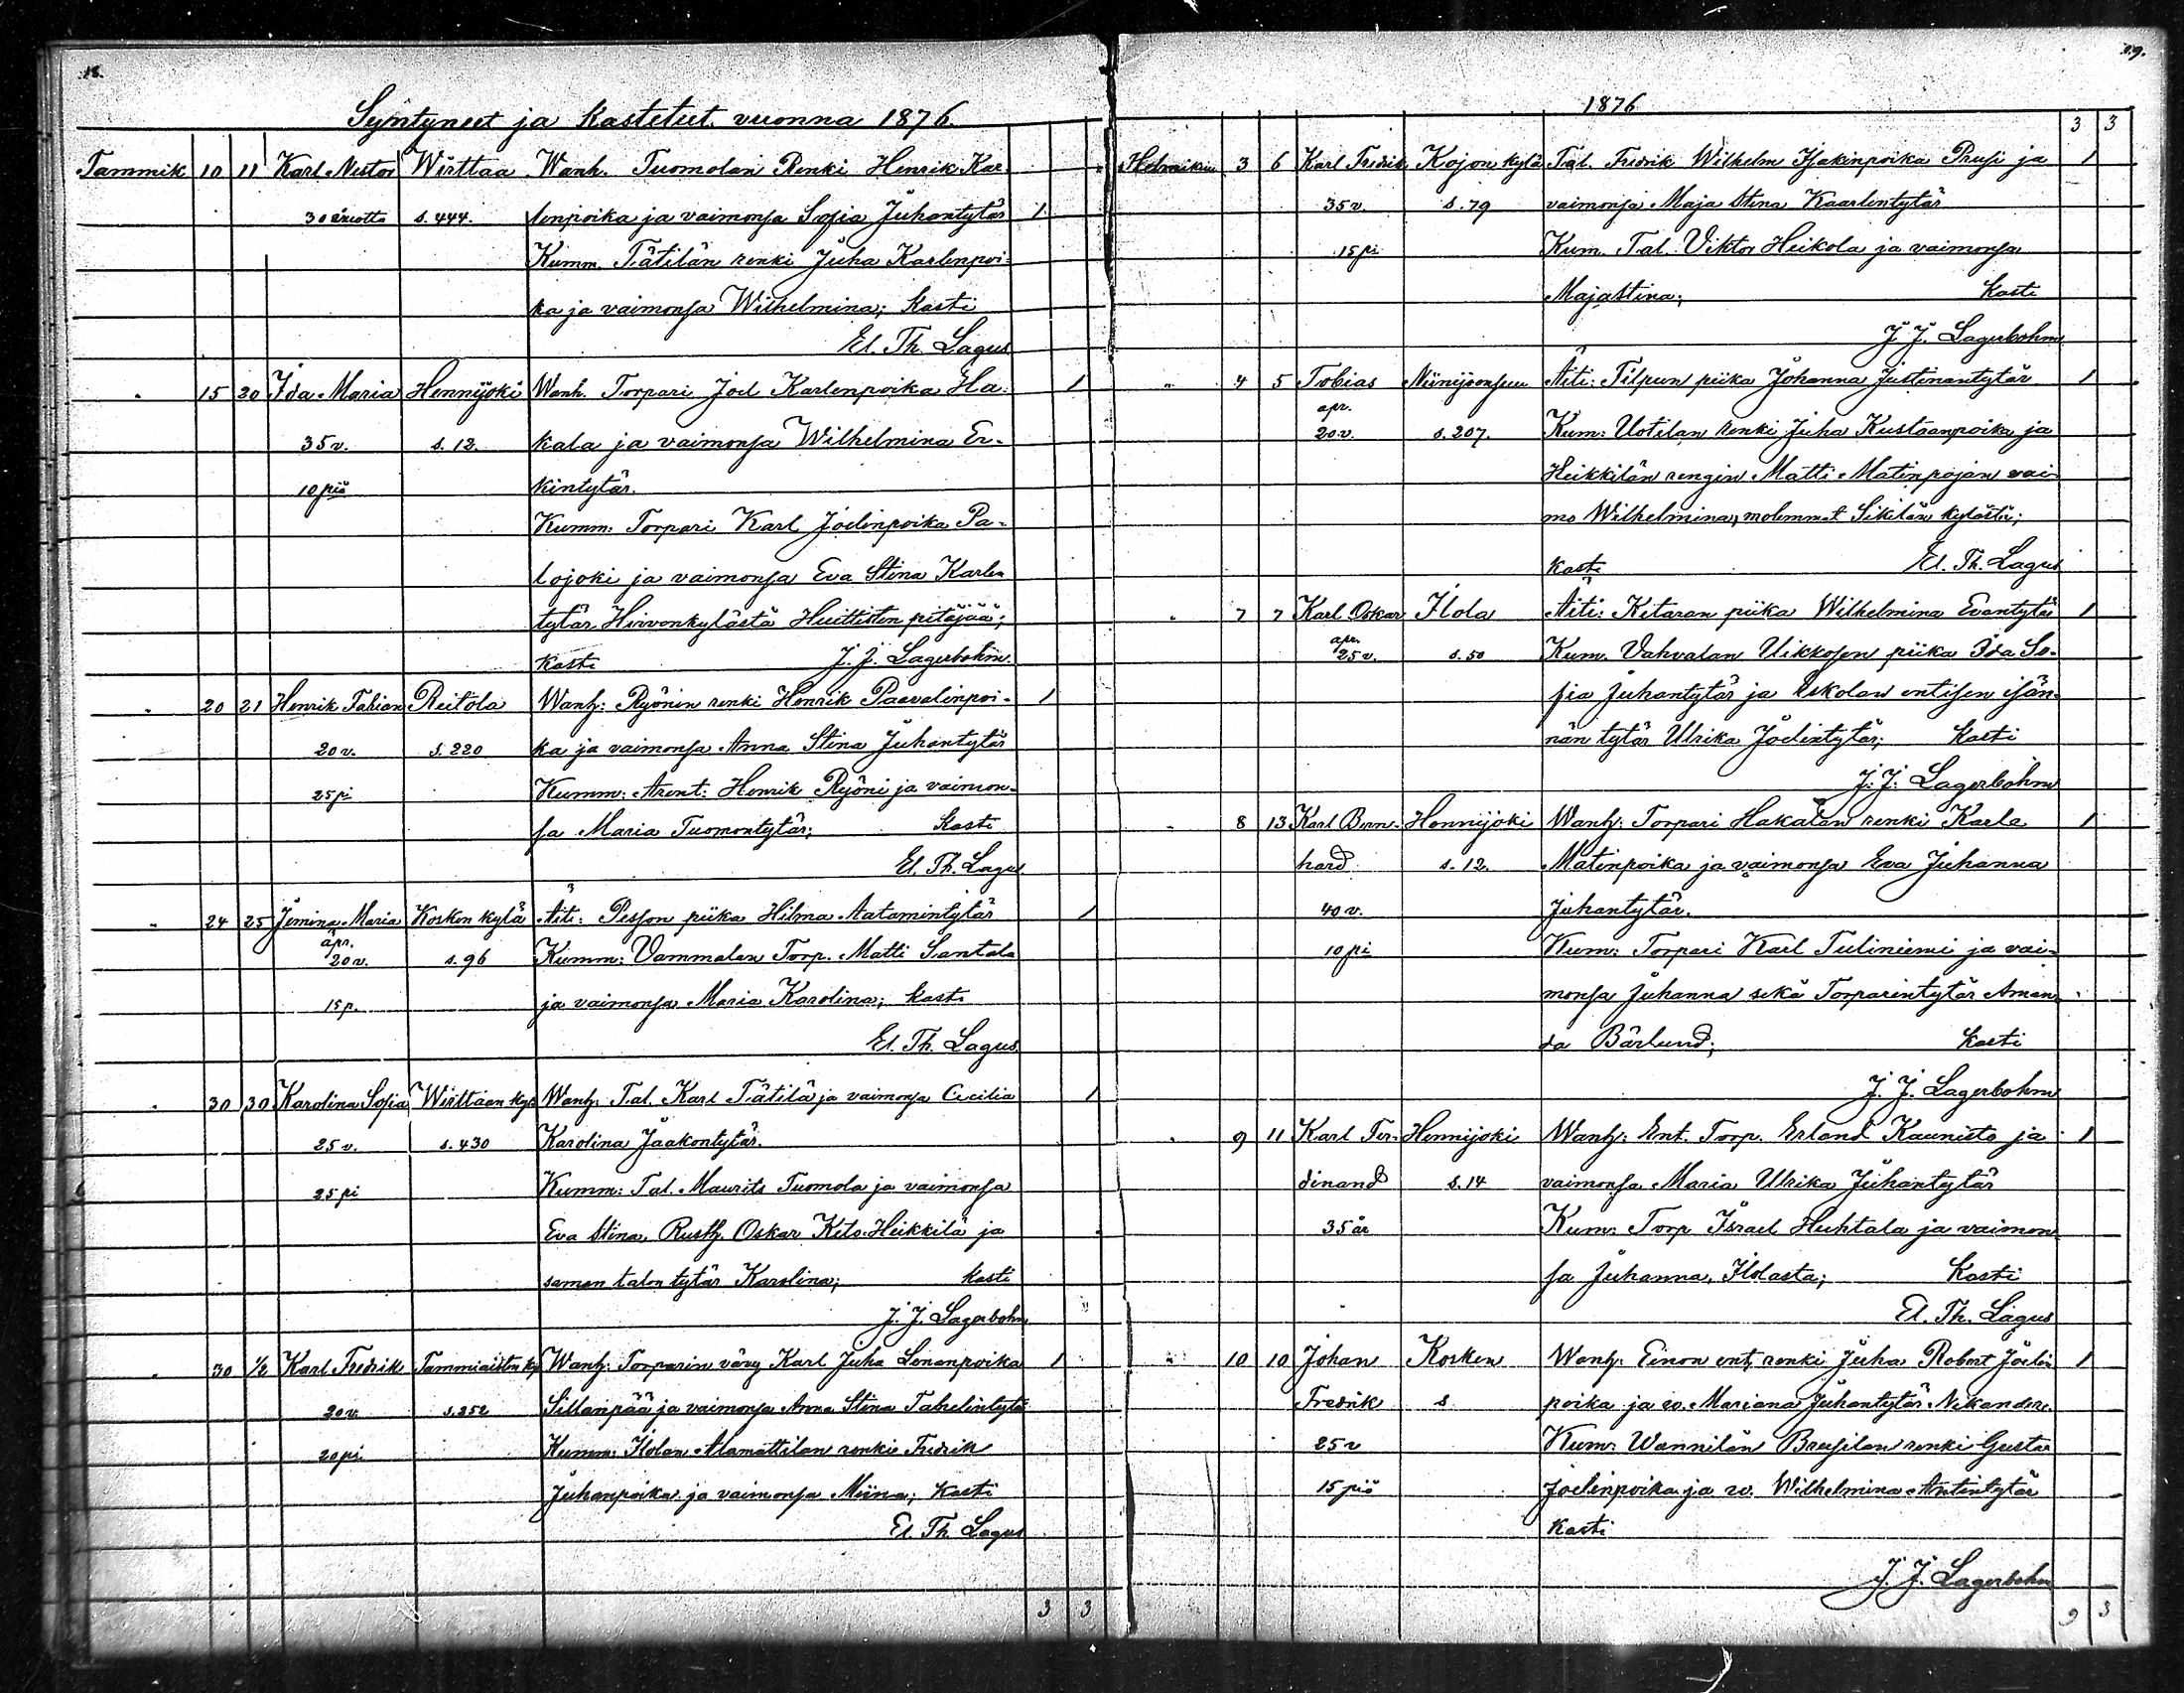 18.
Syntyneet ja Kastetut vuonna 1876.
Tammik 10 11 Karl Nestor Wirttaa Wanh. Tuomolan Renki Henrik Kar-
s. 444. lenpoika ja vaimonsa Sofia Juhantytär 1
Kumm. Tätilän renki Juha Karlenpoi-
ka ja vaimonsa Wilhelmina; Kasti
El. Th. Lagus
" 15 20 Ida Maria Hennijoki Wanh. Torpari Joel Karlenpoika Ha- 1
35 v. s. 12. kala ja vaimonsa Wilhelmina Er-
10 piä kintytär.
Kumm: Torpari Karl Joelinpoika Pa-
lojoki ja vaimonsa Eva Stina Karlen
tytär Hirvonkylästä Huittisten pitäjää;
kasti J. J. Lagerbohm.
" 20 21 Henrik Fabian Reitola Wanh: Ryönin renki Henrik Paavalinpoi- 1
20 v. s. 220 ka ja vaimonsa Anna Stina Juhantytär
25 pi Kumm: Arent: Henrik Ryöni ja vaimon-
sa Maria Tuomontytär; Kasti
El. Th. Lagus
" 24 25 Jemina Maria Kosken kylä Äiti: Pesson piika Hilma Aatamintytär 1
apr.
20 v. s. 96 Kumm: Vammalan Torp. Matti Santala
15 p. ja vaimonsa Maria Karolina; kasti
El. Th. Lagus
" 30 30 Karolina Sofia Wirttaan kyl Wanh: Tal. Karl Tätilä ja vaimonsa Cecilia 1
25 v. s. 430 Karolina Jaakontytär.
25 pi Kumm: Tal. Maurits Tuomola ja vaimonsa
Eva Stina, Rusth. Oskar Keto-Heikkilä ja
saman talon tytär Karolina; kasti
J. J. Lagerbohm
" 30 1/2 Karl Fredrik Tammiaisten ky Wanh: Torparin vävy Karl Juha Lenanpoika 1
20 v. s. 252 Sillanpää ja vaimonsa Anna Stina
20 pi. Kumm: Ilolan Alamattilan renki Fredrik
Juhanpoika ja vaimonsa Miina; Kasti
El. Th Lagus
3 3
19.
1876
3 3
Helmikuu 3 6 Karl Fredrik Kojon kylä Tal. Fredrik Wilhelm Isakinpoika Prusi ja 1
35 v. s. 79 vaimonsa Maja Stina Kaarlentytär
15 pi Kum. Tal. Viktor Heikola ja vaimonsa
Maja Stina; Kasti
J. J. Lagerbohm
" 4 5 Tobias Niinijoensuu Äiti: Tilpun piika Johanna Justinantytär 1
apr.
20 v. s. 207. Kum: Uotilan renki Juha Kustaanpoika ja
Heikkilän rengin Matti Matinpojan vai-
mo Wilhelmina, molemmat Sikilän kylästä;
kasti El. Th. Lagus
" 7 7 Karl Oskar Ilola Äiti: Kitaran piika Wilhelmina Evantytär 1
apr.
25 v. s. 50 Kum. Vahvalan Uikkosen piika Ida So-
fia Juhantytär ja Eskolan entisen isän-
nän tytär Ulrika Joelintytär; Kasti
J. J. Lagerbohm
" 8 13 Karl Bern- Hennijoki Wanh: Torpari Hakalan renki Karle 1
hard s. 12. Matinpoika ja vaimonsa Eva Juhanna
40 v. Juhantytär.
10 pi Kum: Torpari Karl Tuliniemi ja vai-
monsa Juhanna sekä Torparintytär Aman-
da Bärlund; Kasti
J. J. Lagerbohm
" 9 11 Karl Fer- Hennijoki Wanh: Ent. Torp. Erland Kaunisto ja 1
dinand s. 14 vaimonsa Maria Ulrika Juhantytär
35 år Kum: Torp Israel Huhtala ja vaimon
sa Juhanna, Ilolasta; Kasti
El. Th. Lagus
" 10 10 Johan Kosken Wanh: Einon ent. renki Juha Robert Joelin 1
Fredrik s poika ja w. Mariana Juhantytär Nikander.
25 v Kum: Wannilan Brusilan renki Gusta
15 piä Joelinpoika ja w. Wilhelmina Antintytär
Kasti
J. J. Lagerbohm
9 3